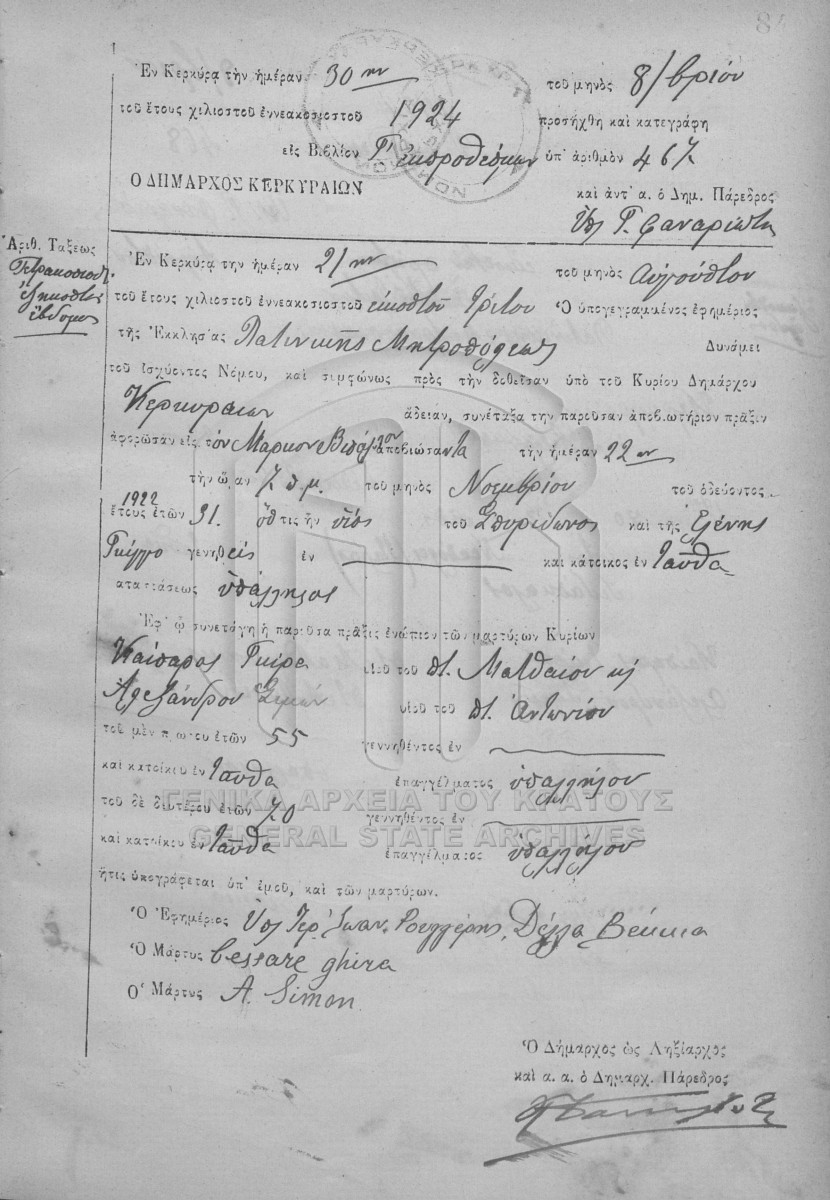 84
Ἐν Κερκύρᾳ τὴν ἡμέραν 30ην τοῦ μηνὸς 8/βρίου
τοῦ ἔτους χιλιοστοῦ ἐννεακοσιοστοῦ 1924 προσήχθη καὶ κατεγράφη
εἰς Βιβλίον Γ' ἐκπροθέσμων ὑπ' ἀριθμὸν 467
Ο ΔΗΜΑΡΧΟΣ ΚΕΡΚΥΡΑΙΩΝ
καὶ ἀντ' α. ὁ Δημ. Πάρεδρος
Ὑπ Γ. Φαναριώτη
Ἀριθ. Τάξεως
Τετρακοσιοστ.
ἑξηκοστὸς
ἕβδομος
Ἐν Κερκύρᾳ την ἡμέραν 21ην τοῦ μηνὸς Αὐγούστου
τοῦ ἔτους χιλιοστοῦ ἐννεακοσιοστοῦ εἰκοστοῦ τρίτου Ὁ ὑπογεγραμμένος ἐφημέριος
τῆς Ἐκκλησίας Λατινικῆς Μητροπόλεως Δυνάμει
τοῦ ἰσχύοντος Νόμου, καὶ συμφώνως πρὸς τὴν δοθεῖσαν ὑπὸ τοῦ Κυρίου Δημάρχου
Κερκυραίων ἄδειαν, συνέταξα την παροῦσαν ἀποβιωτήριον πρᾶξιν
ἀφορῶσαν εἰς τὸν Μάρκον ἀποβιώσαντα τὴν ἡμέραν 22αν
τὴν ὥραν 7 π.μ. τοῦ μηνὸς Νοεμβρίου τοῦ ὁδεύοντος
1922
ἔτους ἐτῶν 31. ὅστις ἦν υἱὸς τοῦ Σπυρίδωνος καὶ τῆς Ἑλένης
γενηθεὶς ἐν καὶ κάτοικος ἐν Ἰαῦθα
καταστάσεως ὑπάλληλος
Ἐφ' ᾧ συνετάγη ἡ παροῦσα πρᾶξις ἐνώπιον τῶν μαρτύρων Κυρίων
Καίσαρος Γκίρα υἱοῦ τοῦ πτ. Ματθαίου κὶ
Ἀλεξάνδρου Σιμών υἱοῦ τοῦ πτ. Ἀντωνίου
τοῦ μὲν πρώτου ἐτῶν 55 γεννηθέντος ἐν
καὶ κατοίκου ἐν Ἰαῦθα ἐπαγγέλματος ὑπαλλήλου
τοῦ δὲ δευτέρου ἐτῶν 70 γεννηθέντος ἐν
καὶ κατοίκου ἐν Ἰαῦθα ἐπαγγέλματος ὑπαλλήλου
ἥτις ὑπογράφεται ὑπ' ἐμοῦ, καὶ τῶν μαρτύρων.
Ὁ Ἐφημέριος Ὑπ Ἱερ. Ἰωαν. Ρουγγέρης Δέλλα Βέκκια
Ὁ Μάρτυς Cessare ghira
Ὁ Μάρτυς A. Simon
ΓΕΝΙΚΑ ΑΡΧΕΙΑ ΤΟΥ ΚΡΑΤΟΥΣ
GENERAL STATE ARCHIVES
Ὁ Δήμαρχος ὡς Ληξίαρχος
καὶ α. α. ὁ Δημαρχ. Πάρεδρος